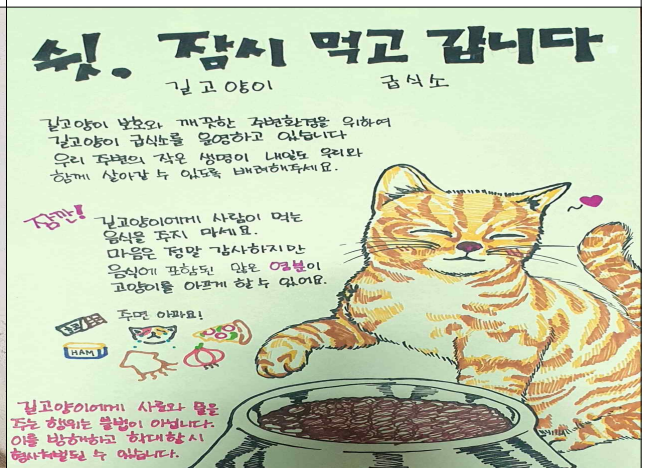 쉿. 잠시 먹고 갑니다
길고양이 급식소
길고양이 보호와 깨끗한 주변환경을 위하여
길고양이 급식소를 운영하고 있습니다
우리 주변의 작은 생명이 내일도 우리와
함께 살아갈 수 있도록 배려해주세요.
잠깐!
길고양이에게 사람이 먹는
음식을 주지 마세요.
마음은 정말 감사하지만
음식에 포함된 많은 염분이
고양이를 아프게 할 수 있어요.
주면 아파요!
HAM
길고양이에게 사료와 물을
주는 행위는 불법이 아닙니다.
이를 방해하고 학대할 시
형사처벌될 수 있습니다.